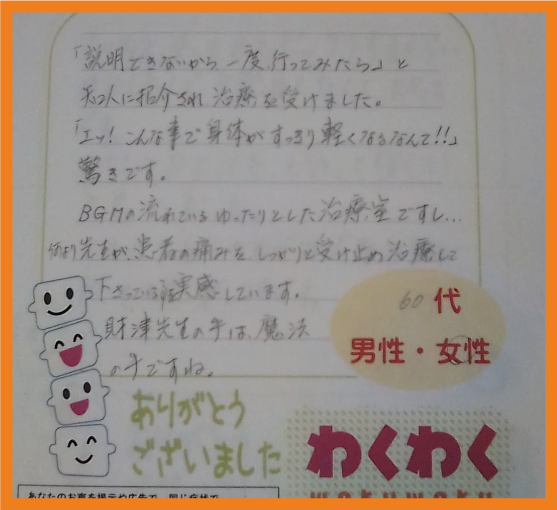 「説明できないから一度行ってみたら」と
知人に紹介され治療を受けました。
「エッ!こんな事で身体がすっきり軽くなるなんて!!」
驚きです。
BGMの流れているゆったりとした治療室ですし...
何より先生が、患者の痛みをしっかりと受け止め治療して
下さっている事実感しています。
財津先生の手は、魔法
の手ですね。
60代
男性・女性
ありがとう
ございました
わくわく
wakuwaku
あなたのお声を掲示や広告で、同じ症状で